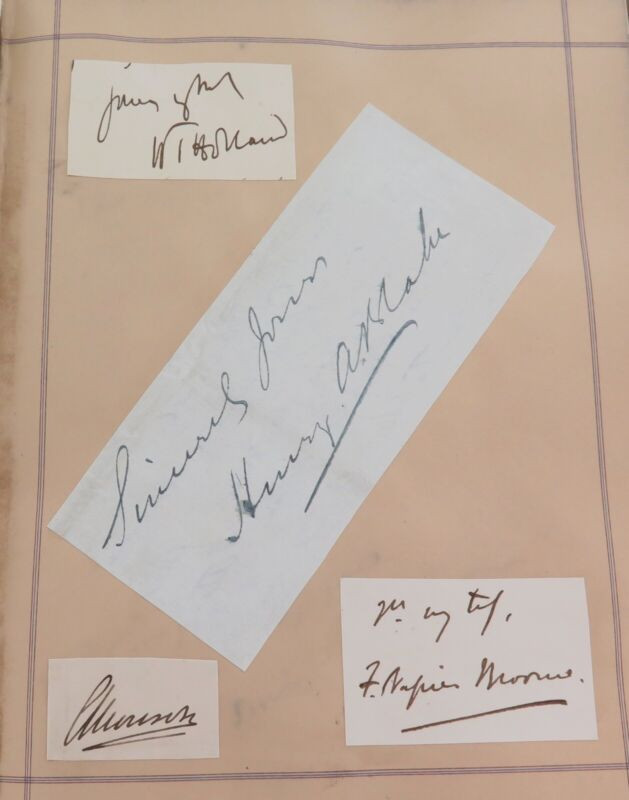 Yours ty
W T Holland
Sincerely Yours
Henry A. Blake
Yrs. vy try,
F. Napier Broome.